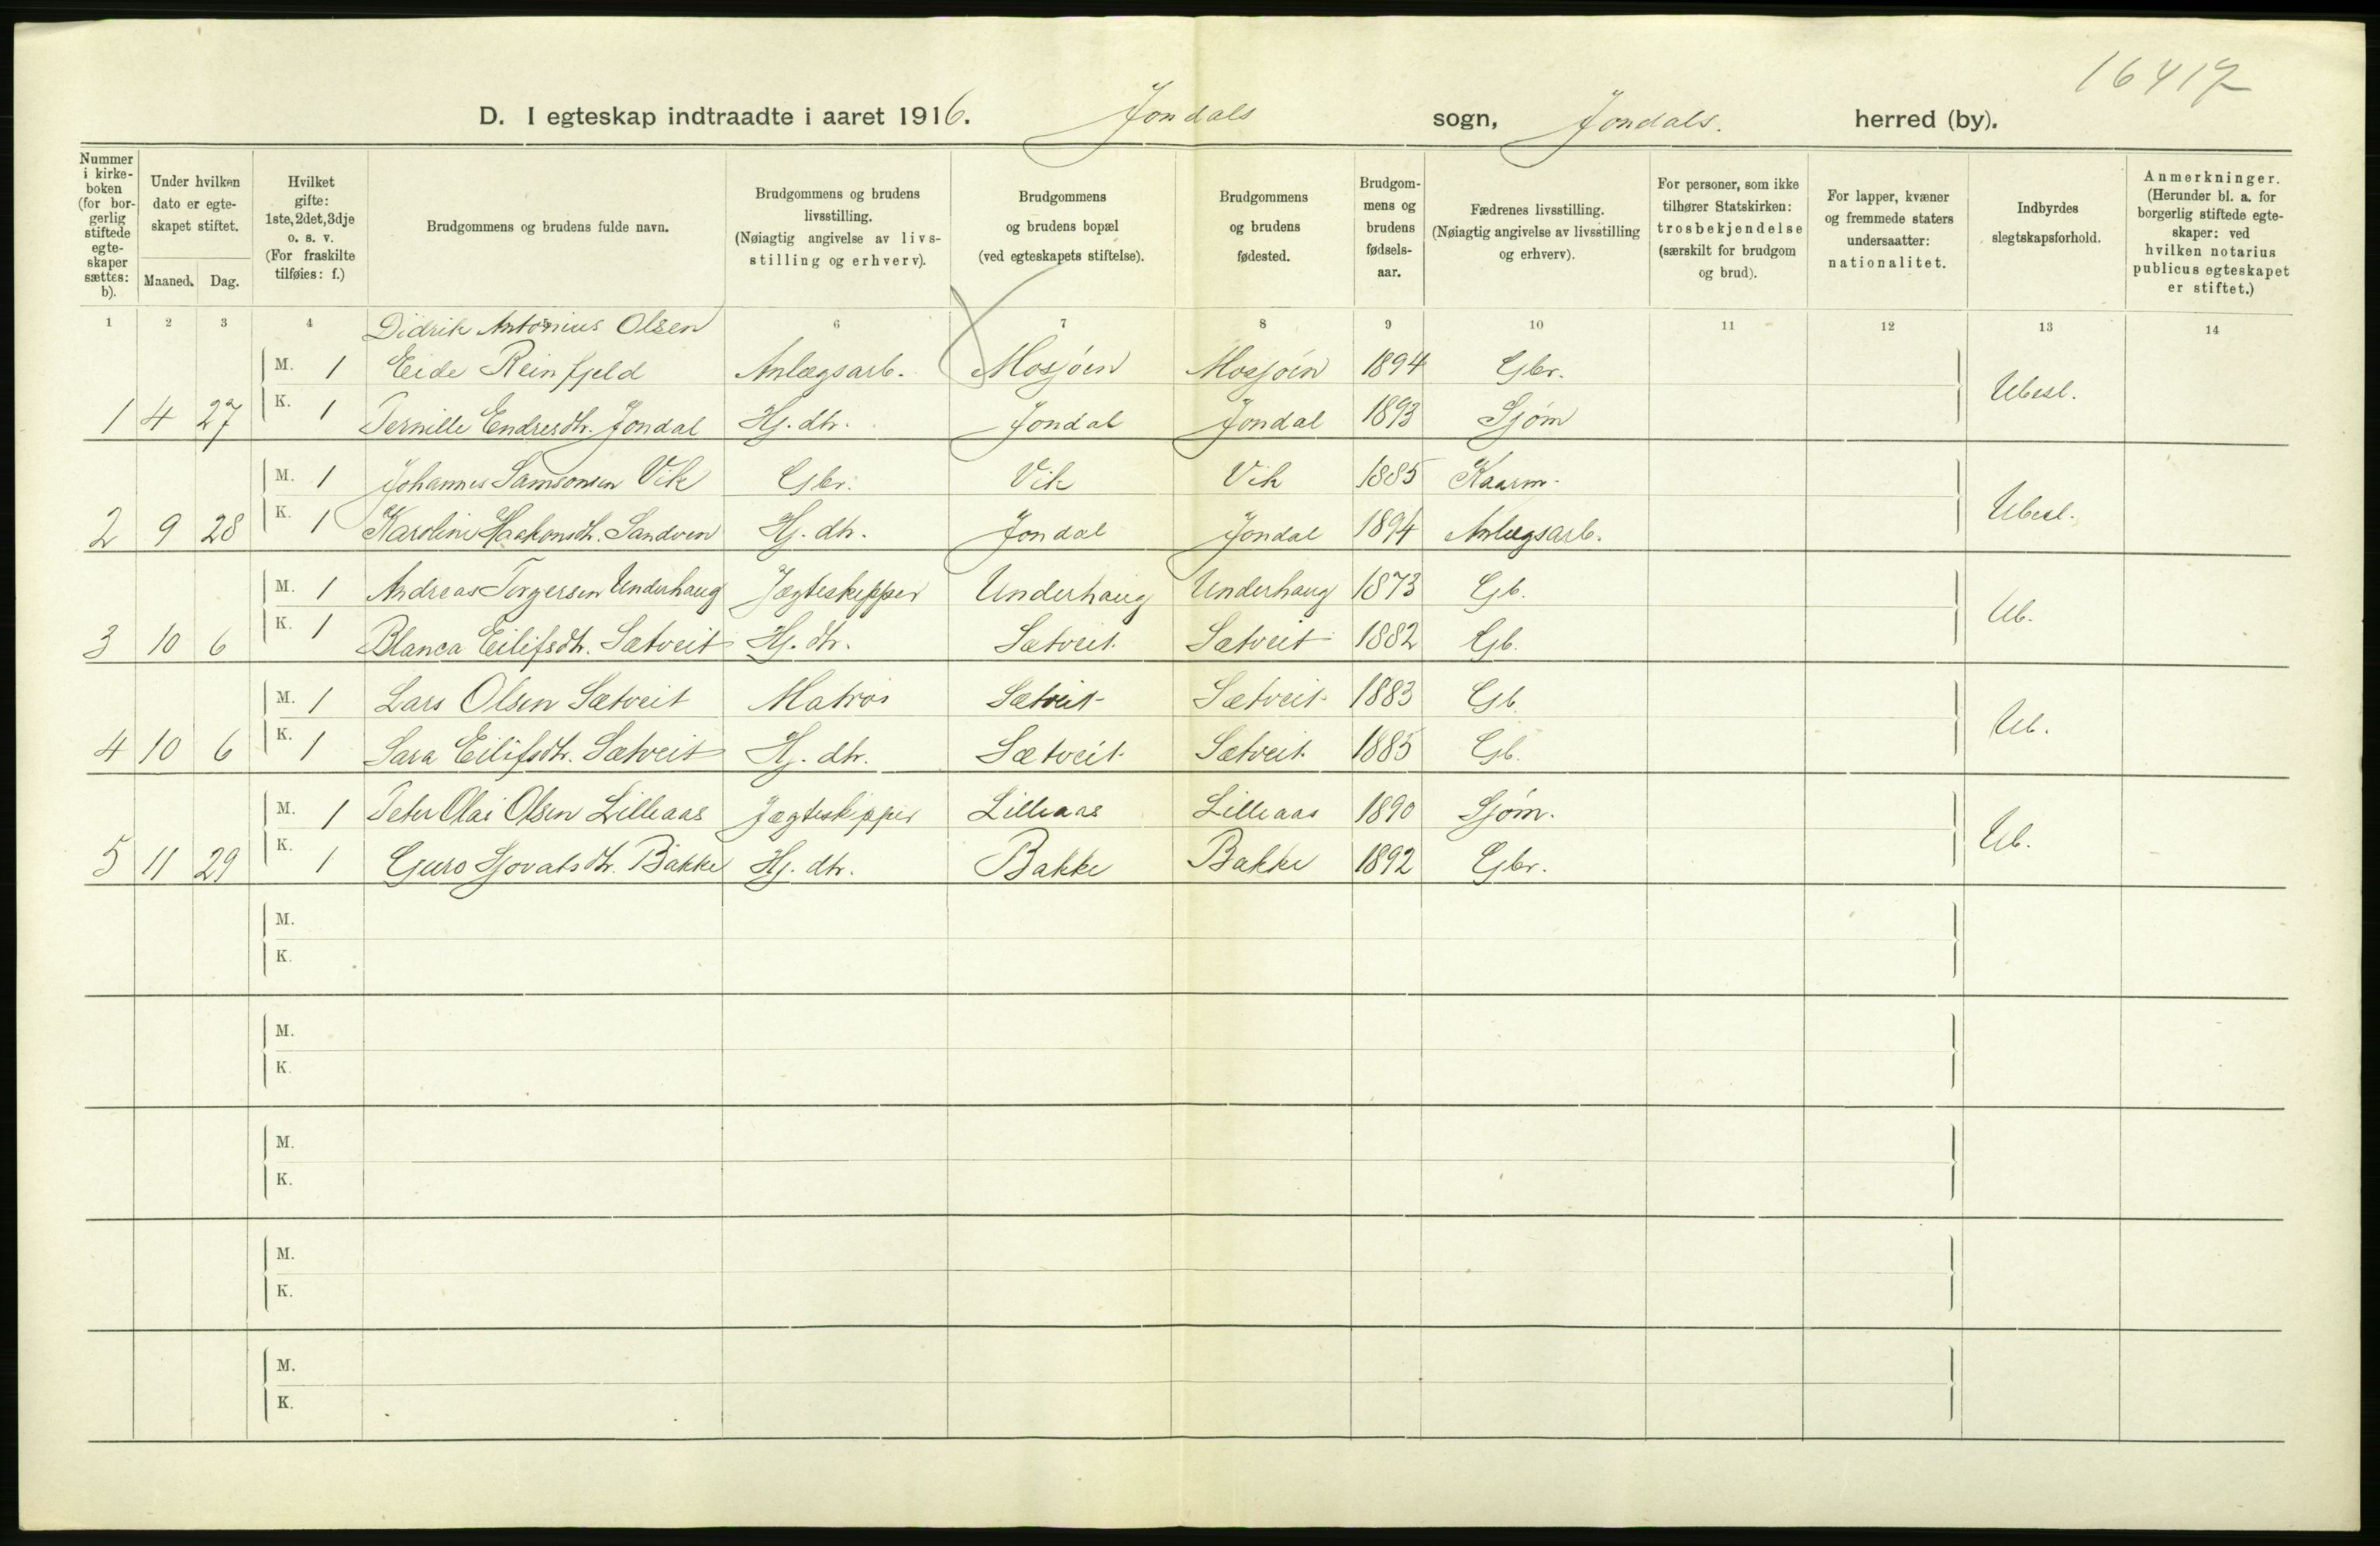 16417
D. I egteskap indtraadte i aaret 1916. Jondals sogn, Jondals. herred (by).
Nummer i kirkeboken (for borgerlig stiftede egteskaper sættes: b).
Under hvilken dato er egteskapet stiftet.
Maaned. Dag.
Hvilket gifte: 1ste, 2det, 3dje o. s. v. (For fraskilte tilføies: f.)
Brudgommens og brudens fulde navn.
Brudgommens og brudens livsstilling. (Nøiagtig angivelse av livsstilling og erhverv).
Brudgommens og brudens bopæl (ved egteskapets stiftelse).
Brudgommens og brudens fødested.
Brudgommens og brudens fødselsaar.
Fædrenes livsstilling. (Nøiagtig angivelse av livsstilling og erhverv).
For personer, som ikke tilhører Statskirken: trosbekjendelse (særskilt for brudgom og brud).
For lapper, kvæner og fremmede staters undersaatter: nationalitet.
Indbyrdes slegtskapsforhold.
Anmerkninger. (Herunder bl. a. for borgerlig stiftede egteskaper: ved hvilken notarius publicus egteskapet er stiftet.)
1 2 3 4 6 7 8 9 10 11 12 13 14
Didrik Antonius Olsen
M. 1 Eide Reinfjeld Anlægsarb. Mosjöen Mosjöen 1894 Gbr. Ubesl.
1 4 27 K. 1 Pernille Endresdtr. Jondal Hj. dtr. Jondal Jondal 1893 Sjöm
M. 1 Johannes Samsonsen Vik Gbr. Vik Vik 1885 Kaarm. Ubesl.
2 9 28 K. 1 Karoline Haakonsdtr. Sandven Hj. dtr. Jondal Jondal 1894 Anlægsarb.
M. 1 Andreas Torgersen Underhaug Jægteskipper Underhaug Underhaug 1873 Gb. Ub.
3 10 6 K. 1 Blanca Eilifsdtr. Sætveit Hj. dtr. Sætveit Sætveit 1882 Gb.
M. 1 Lars Olsen Sætveit Matros Sætveit Sætveit 1883 Gb. Ub.
4 10 6 K. 1 Sara Eilifsdtr. Sætveit Hj. dtr. Sætveit Sætveit 1885 Gb.
M. 1 Peter Olai Olsen Lilleaas Jægteskipper Lilleaas Lilleaas 1890 Sjöm. Ub.
5 11 29 K. 1 Guro Sjovatsdtr. Bakke Hj. dtr. Bakke Bakke 1892 Gbr.
M.
K.
M.
K.
M.
K.
M.
K.
M.
K.